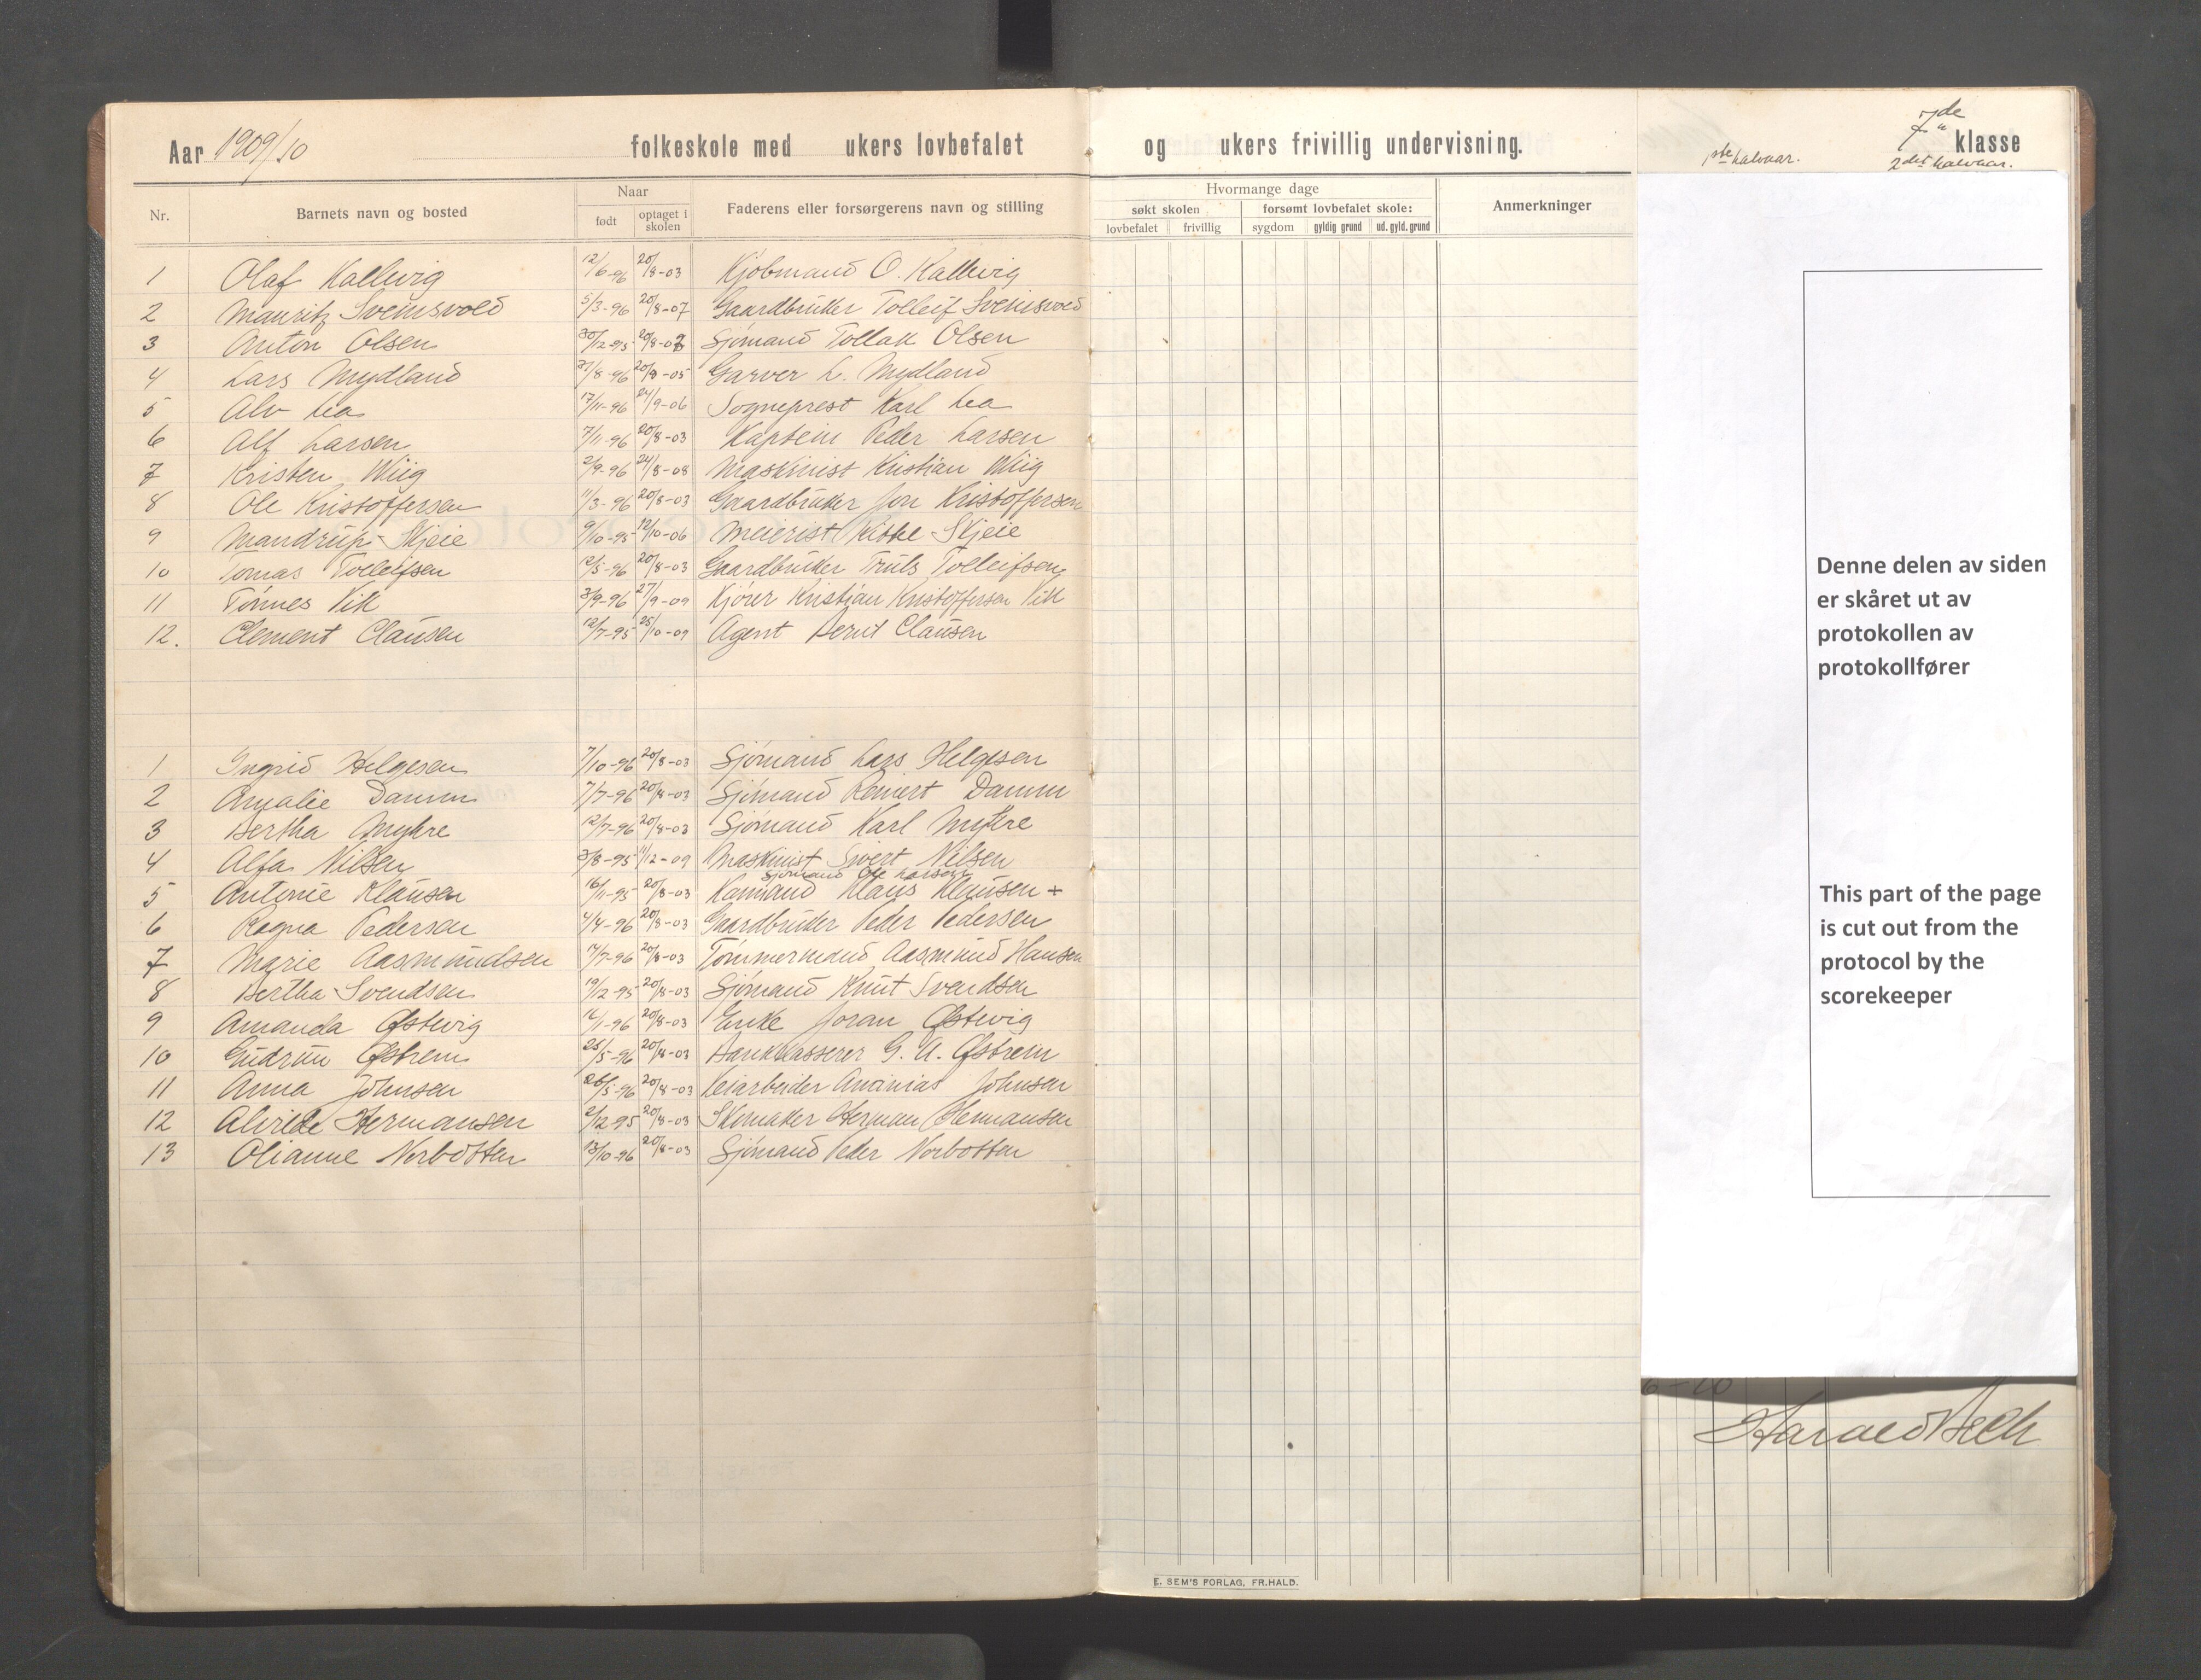 Aar 1909/10 folkeskole med ukers lovbefalet og ukers frivillig undervisning. 7de klasse
1ste halvaar. 2det halvaar.
Nr. Barnets navn og bosted Naar født optaget i skolen Faderens eller forsørgerens navn og stilling Hvormange dage søkt skolen lovbefalet frivillig forsømt lovbefalet skole: sygdom gyldig grund ud. gyld. grund Anmerkninger
1 Olaf Kallevig 12/6-96 20/8-03 Kjøbmand O. Kallevig
2 Mauritz Sveinsvold 5/3-96 20/8-07 Gaardbruker Tolleif Sveinsvold
3 Anton Olsen 30/12-95 20/8-03 Sjømand Tollak Olsen
4 Lars Mydland 31/8-96 20/8-05 Garver L. Mydland
5 Alv Lea 17/11-96 24/9-06 Sogneprest Karl Lea
6 Alf Larsen 7/11-96 20/8-03 Kaptein Peder Larsen
7 Kristen Wiig 2/9-96 24/8-08 Maskinist Kristian Wiig
8 Ole Kristoffersen 11/3-96 20/8-03 Gaardbruker Jon Kristoffersen
9 Mandrup Skjeie 9/10-95 12/10-06 Meierist Skjeie
10 Tomas Tolleifsen 12/5-96 20/8-03 Gaardbruker Truls Tolleifsen
11 Tønnes Vik 3/9-96 27/9-09 Kjører Kristian Kristoffersen Vik
12. Clement Clausen 12/7-95 25/10-09 Agent Bernt Clausen
1 Ingrid Helgesen 7/10-96 20/8-03 Sjømand Lars Helgesen
2 Amalie Damm 7/7-96 20/8-03 Sjømand Reinert Damm
3 Bertha Myhre 12/7-96 20/8-03 Sjømand Karl Myhre
4 Alfa Nilsen 3/8-95 11/12-09 Maskinist Sivert Nilsen
Sjømand Ole Larsen
5 Antonie Klausen 16/11-95 20/8-03 Klaus Klausen +
6 Ragna Pedersen 4/4-96 20/8-03 Gaardbruker Peder Pedersen
7 Marie Aasmundsen 14/7-96 20/8-03 Tømmermand Aasmund Hansen
8 Bertha Svendsen 19/12-95 20/8-03 Sjømand Knut Svendsen
9 Amanda Østevig 12/1-96 20/8-03 Enke Joran Østevig
10 Gudrun Østrem 25/5-96 20/8-03 Bankkasserer G. A. Østrem
11 Anna Johnsen 26/5-96 20/8-03 Veiarbeider Ananias Johnsen
12 Alvilde Hermansen 2/12-95 20/8-03 Skomaker Herman Hermansen
13 Olianne Norbotten 13/10-96 20/8-03 Sjømand Peder Norbotten
Denne delen av siden
er skåret ut av
protokollen av
protokollfører
This part of the page
is cut out from the
protocol by the
scorekeeper
6-10
Harald Bech
E. SEM'S FORLAG, FR.HALD.